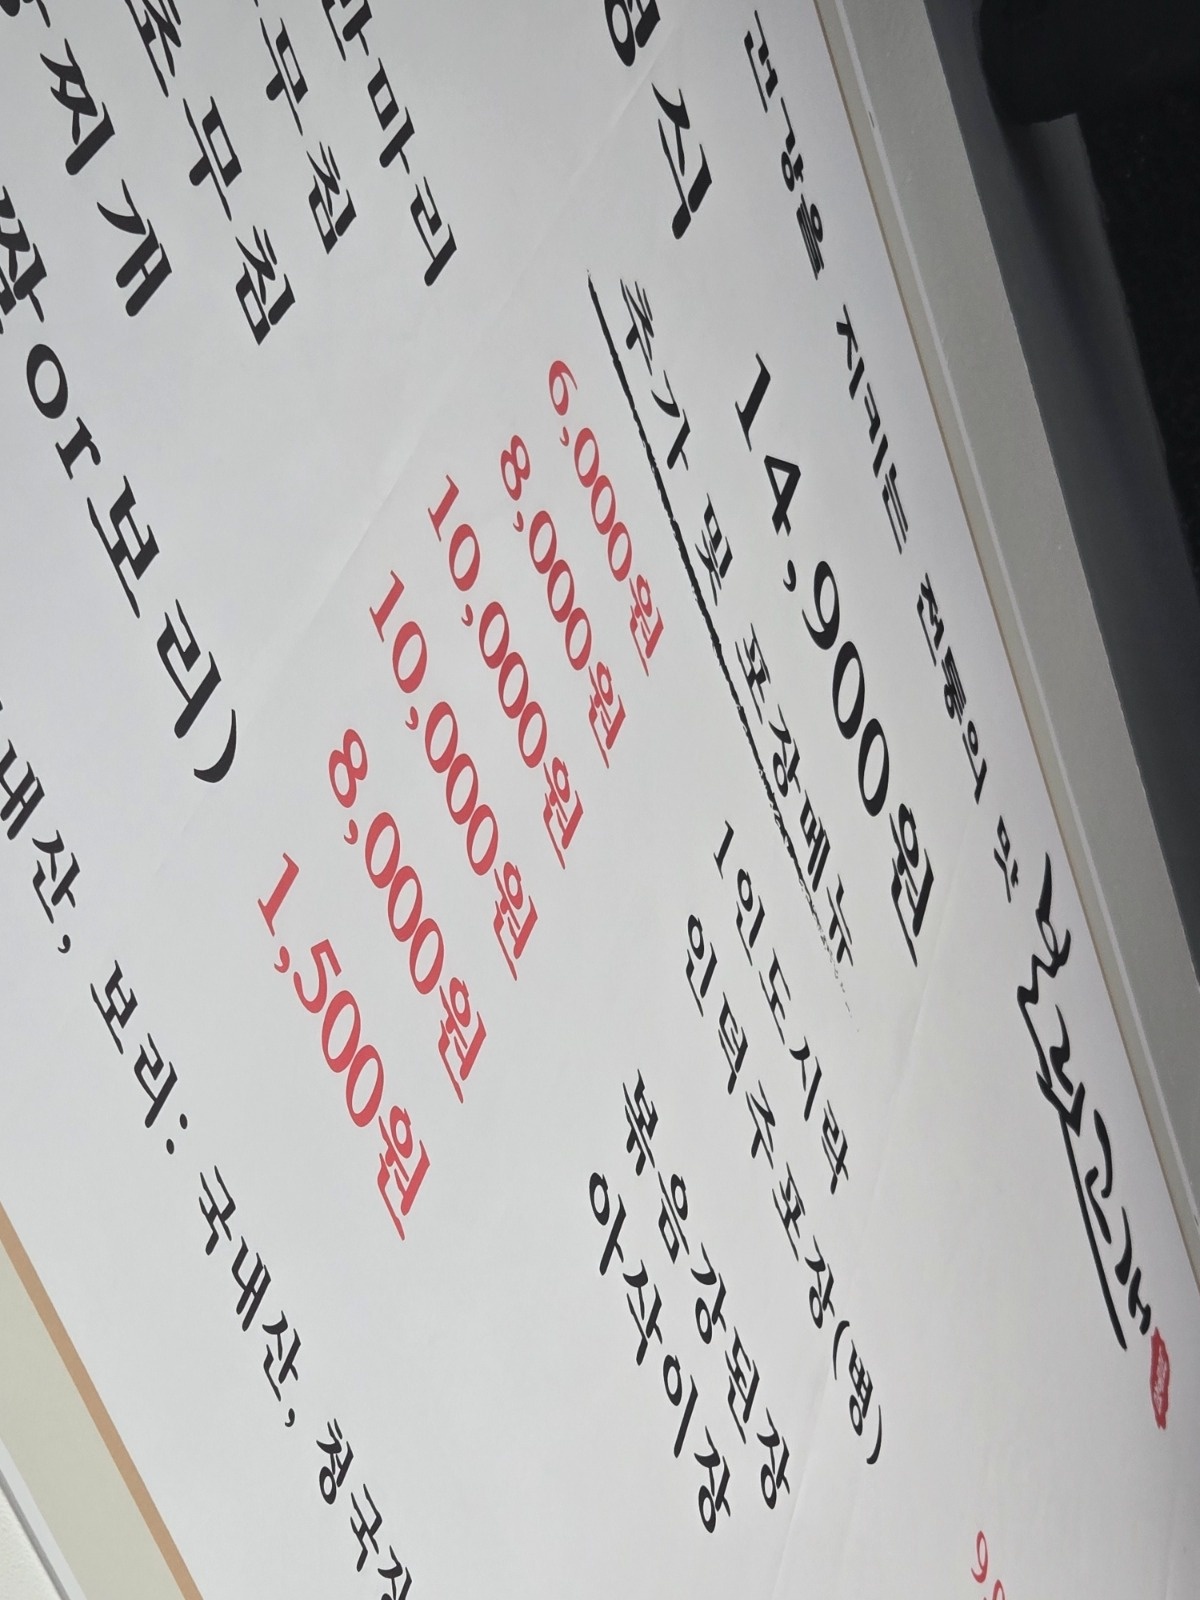 건강을 지키는 전통의 맛
식 14,900원
추가 및 포장메뉴
마리 6,000원 1인도시락
무침 8,000원 포장(병)
초무침 10,000원
찌개 10,000원 볶음강된장
8,000원 아삭이장
or보리) 1,500원
내산, 보리: 국내산, 청국장